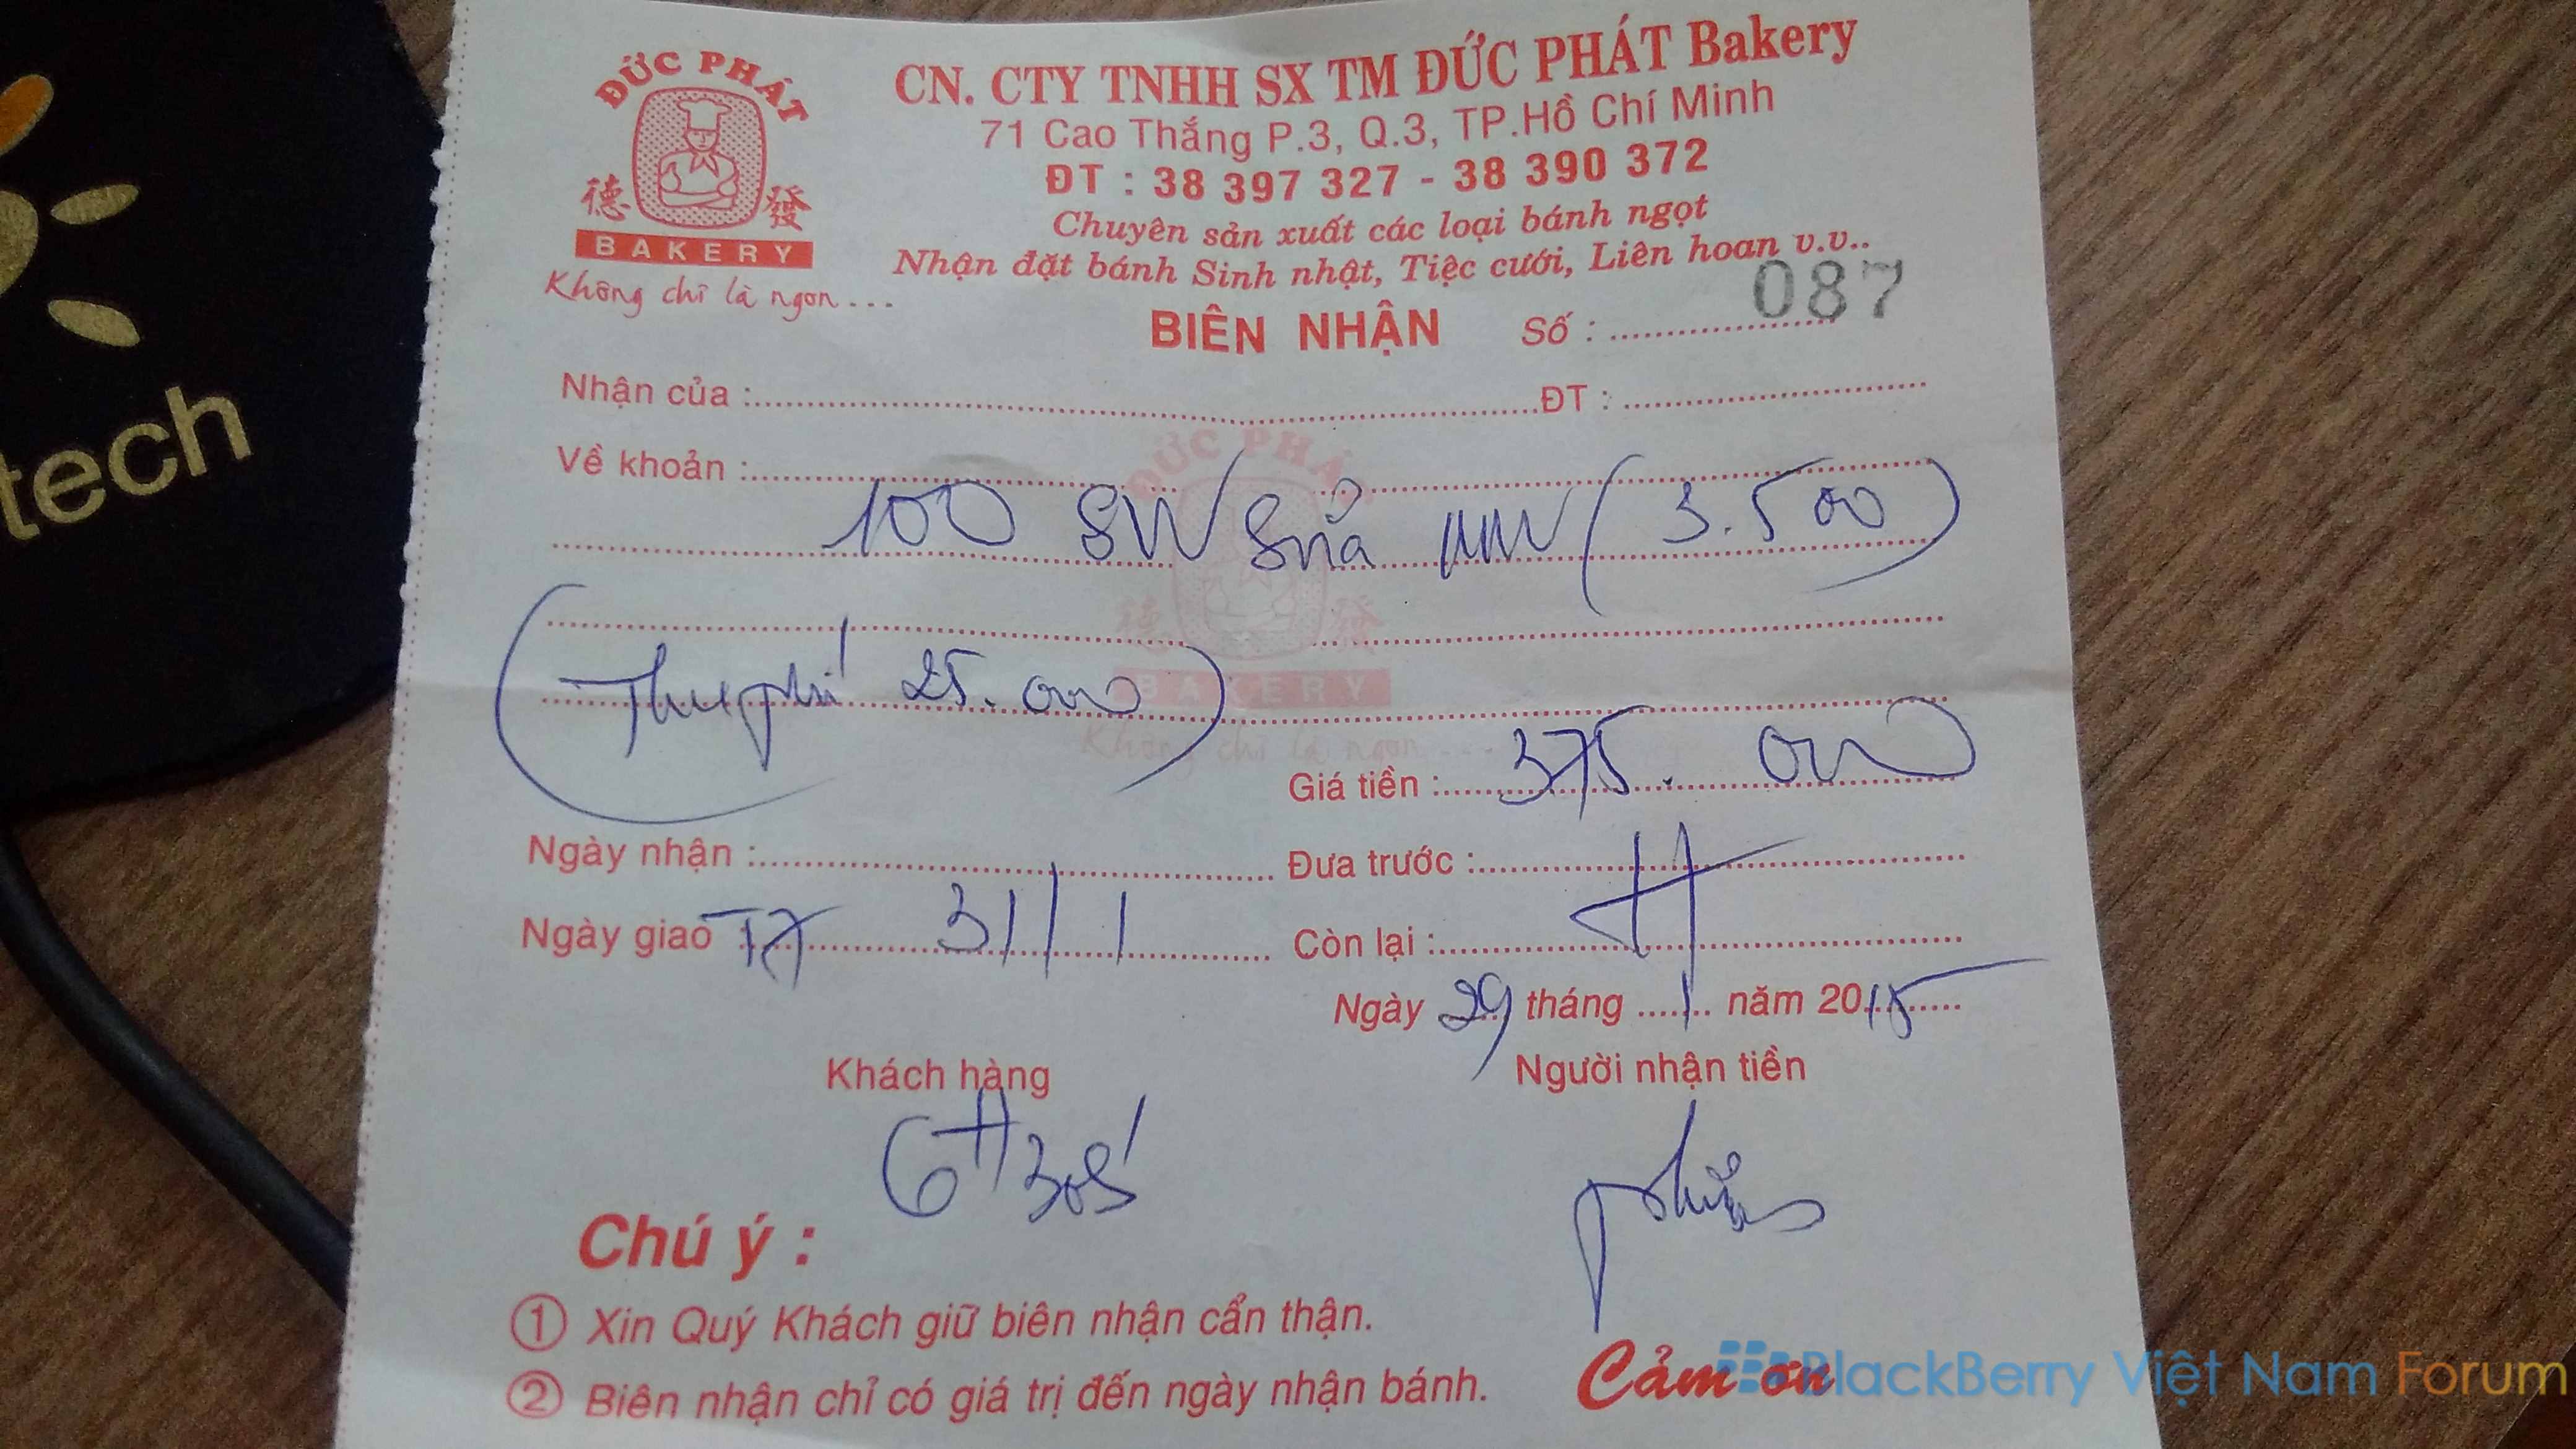 ĐỨC PHÁT
德 發
BAKERY
Không chỉ là ngon...
CN. CTY TNHH SX TM ĐỨC PHÁT Bakery
71 Cao Thắng P.3, Q.3, TP.Hồ Chí Minh
ĐT : 38 397 327 - 38 390 372
Chuyên sản xuất các loại bánh ngọt
Nhận đặt bánh Sinh nhật, Tiệc cưới, Liên hoan v.v..
BIÊN NHẬN Số : 087
Nhận của : ĐT :
Về khoản :
100 SW (3.500)
ĐỨC PHÁT
德 發
BAKERY
Không chỉ là ngon...
(Thu phí 25.000)
Giá tiền : 375.000
Ngày nhận : Đưa trước :
Ngày giao : T7 31/1 Còn lại :
Ngày 29 tháng 1 năm 2015
Khách hàng Người nhận tiền
Chú ý :
1 Xin Quý Khách giữ biên nhận cẩn thận.
2 Biên nhận chỉ có giá trị đến ngày nhận bánh.
Cảm ơn
BlackBerry Việt Nam Forum
tech